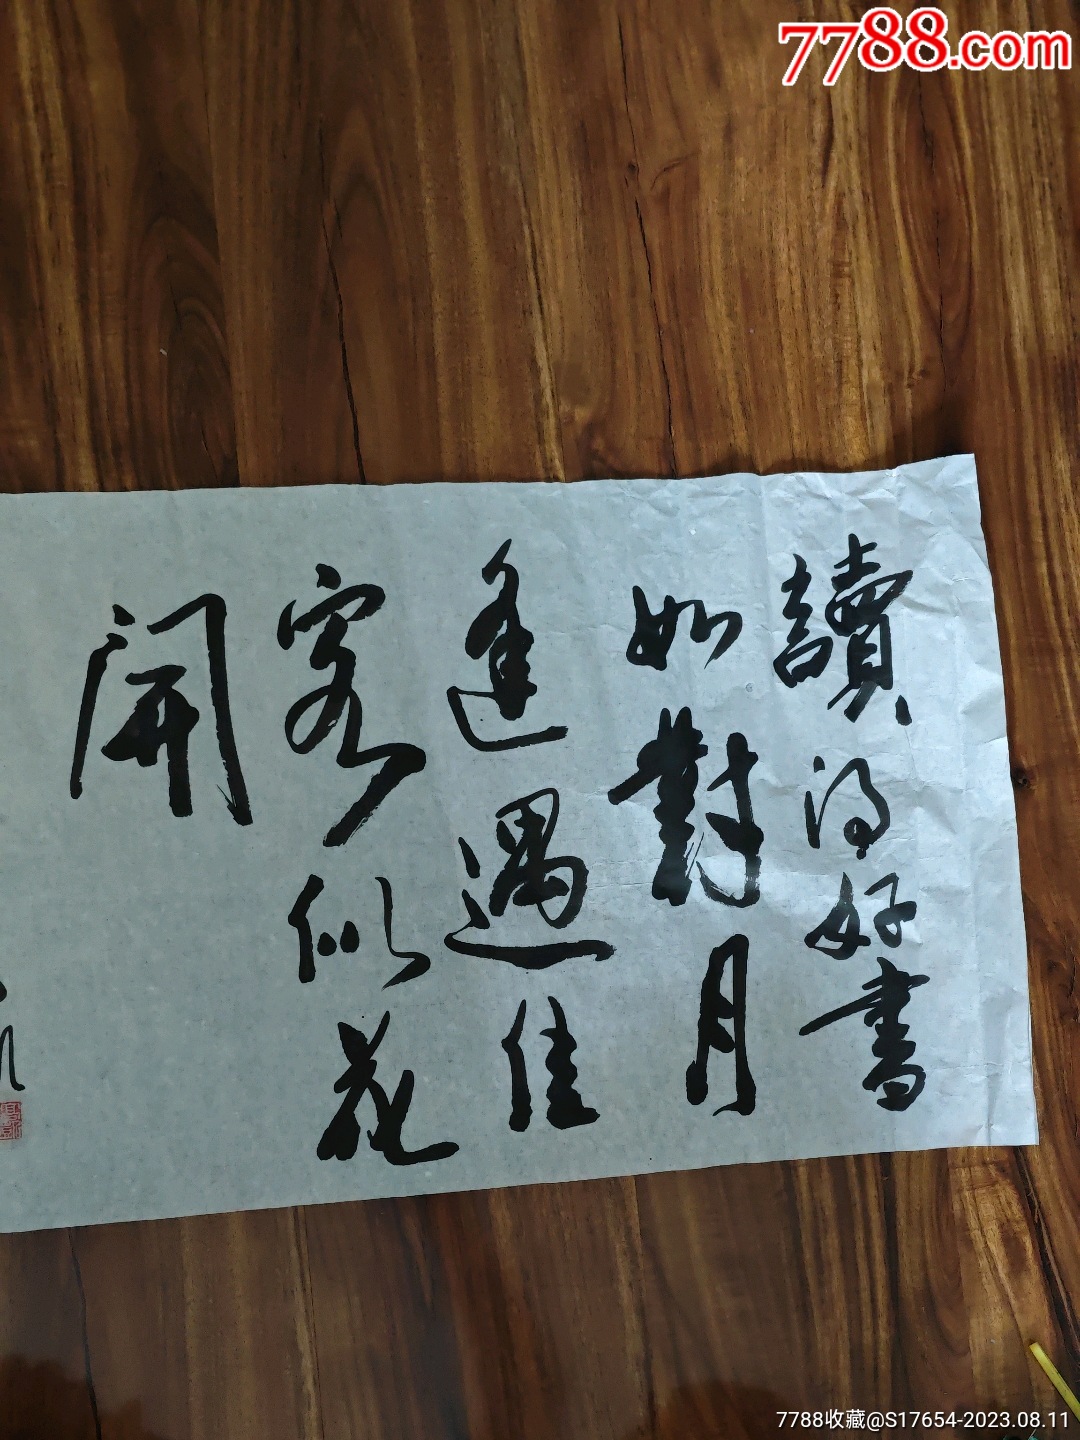 7788.com
讀得好書
如對月
逢遇佳
客似花
開
7788收藏@S17654-2023.08.11